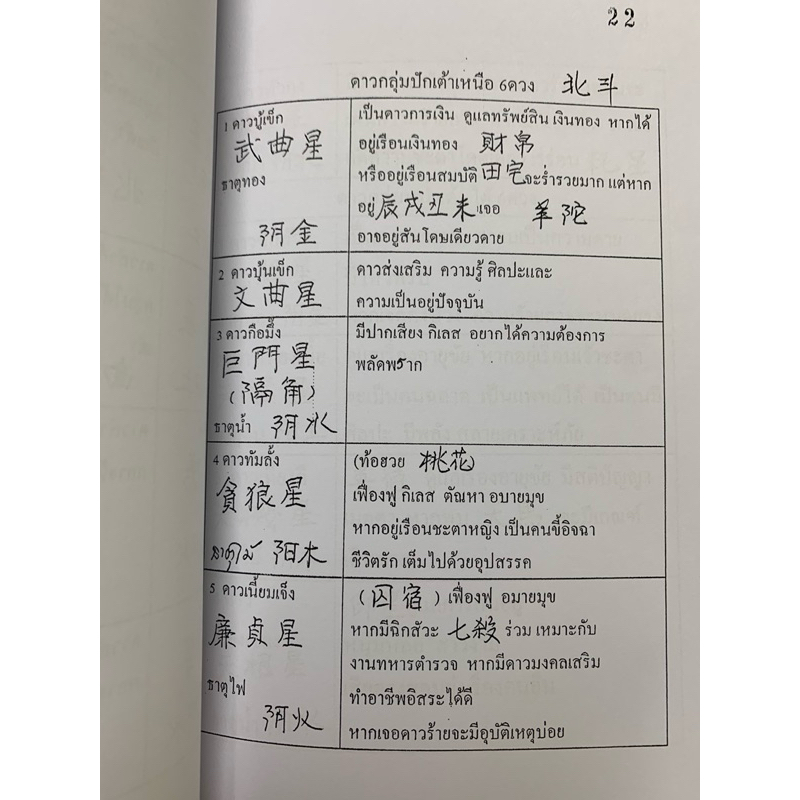 22
ดาวกลุ่มปักเต้าเหนือ 6ดวง 北斗
1 ดาวบู้เข็ก
武曲星
ธาตุทอง
阴金
เป็นดาวการเงิน ดูแลทรัพย์สิน เงินทอง หากได้
อยู่เรือนเงินทอง 財帛
หรืออยู่เรือนสมบัติ 田宅จะร่ำรวยมาก แต่หาก
อยู่ 辰戌丑未 เจอ 羊陀
อาจอยู่สันโดษเดียวดาย
2 ดาวบุ้นเข็ก
文曲星
ดาวส่งเสริม ความรู้ ศิลปะและ
ความเป็นอยู่ปัจจุบัน
3 ดาวกือมึ้ง
巨門星
(隔角)
ธาตุน้ำ 阴水
มีปากเสียง กิเลส อยากได้ความต้องการ
พลัดพราก
4 ดาวทัมลั้ง
貪狼星
ธาตุไม้ 阳木
(ท้อฮวย 桃花)
เฟื่องฟู กิเลส ตัณหา อบายมุข
หากอยู่เรือนชะตาหญิง เป็นคนขี้อิจฉา
ชีวิตรัก เต็มไปด้วยอุปสรรค
5 ดาวเนี้ยมเจ็ง
廉貞星
ธาตุไฟ
阴火
(囚宿) เฟื่องฟู อมายมุข
หากมีฉิกสัวะ 七殺 ร่วม เหมาะกับ
งานทหารตำรวจ หากมีดาวมงคลเสริม
ทำอาชีพอิสระได้ดี
หากเจอดาวร้ายจะมีอุบัติเหตุบ่อย